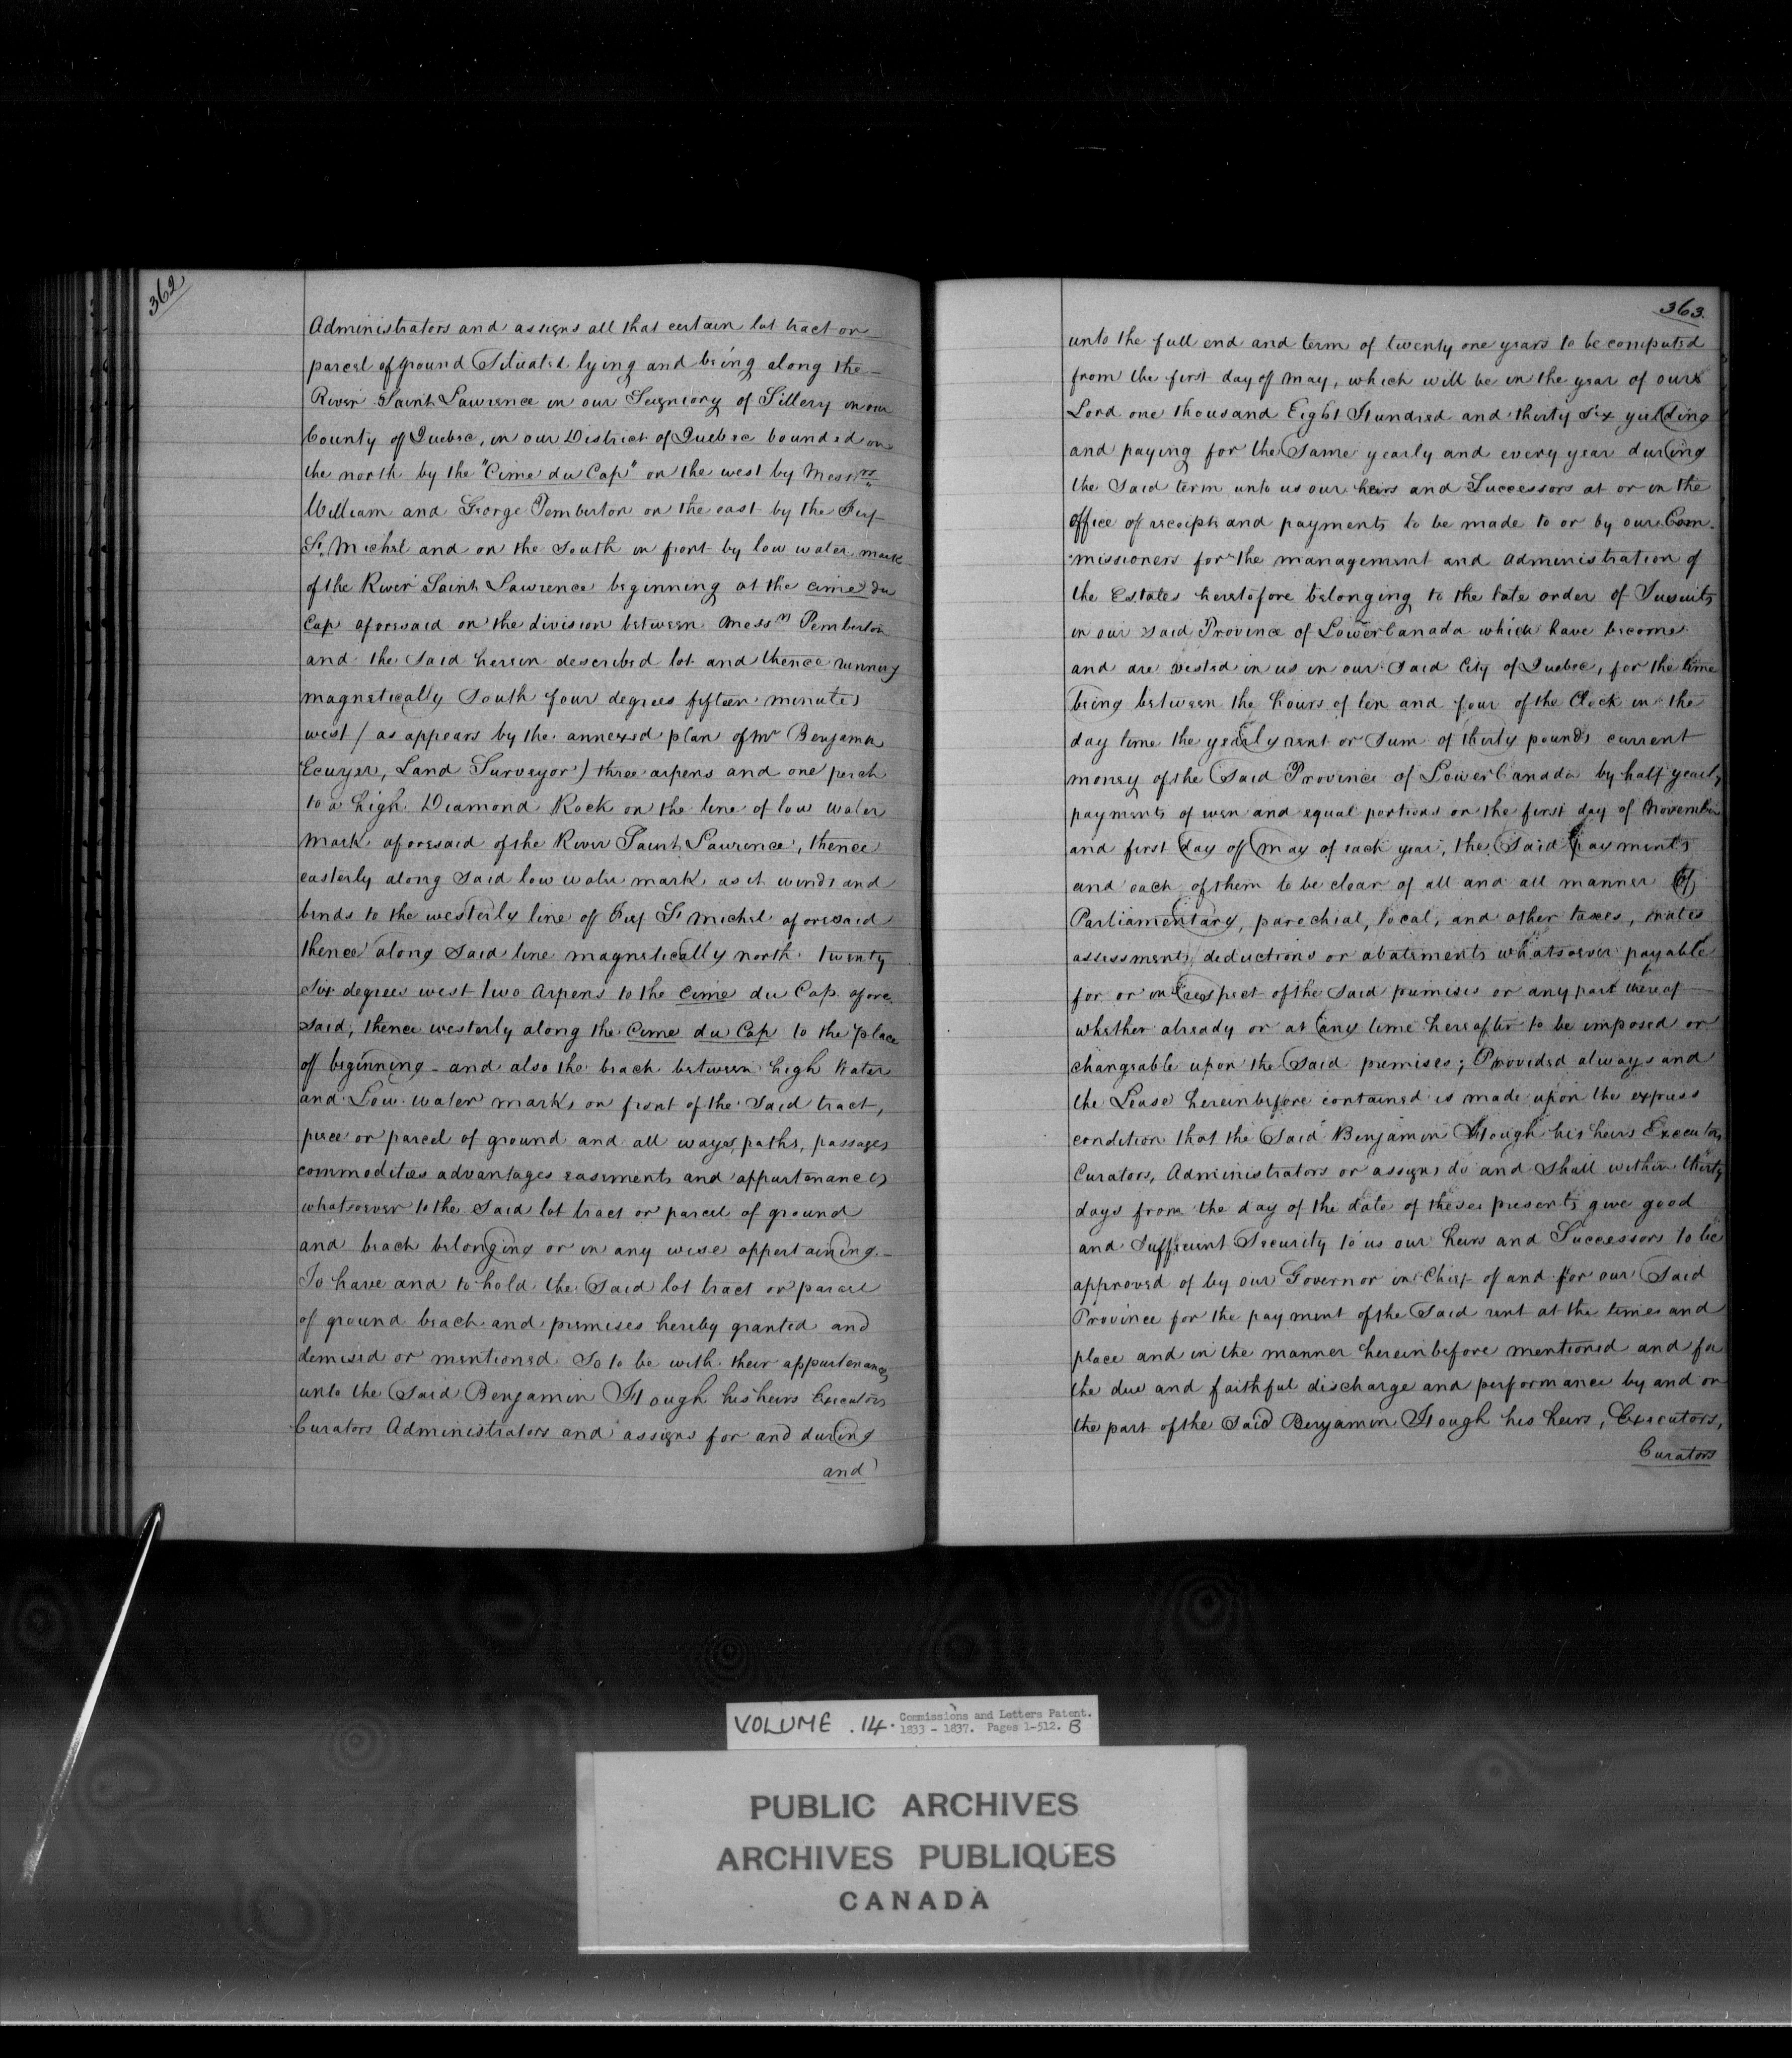 362
Administrators and assigns all that certain lot tract or
parcel of ground Situated lying and being along the
River Saint Lawrence in our Seigniory of Sillery in our
County of Quebec, in our District of Quebec bounded on
the north by the "Cime du Cap" on the west by Messrs
William and George Pemberton on the east by the Fief
St. Michel and on the South in front by low water mark
of the River Saint Lawrence beginning at the cime du
Cap aforesaid on the division between Messrs Pemberton
and the said herein described lot and thence running
magnetically South four degrees fifteen minutes
west / as appears by the annexed plan of Mr Benjamin
Ecuyer, Land Surveyor) three arpens and one perch
to a high Diamond Rock on the line of low water
mark aforesaid of the River Saint Lawrence, thence
easterly along said low water mark as it winds and
binds to the westerly line of Fief St Michel aforesaid
thence along said line magnetically north twenty
six degrees west two Arpens to the Cime du Cap afore
said, thence westerly along the Cime du Cap to the place
of beginning - and also the beach between high Water
and Low water marks on front of the said tract,
piece or parcel of ground and all wayes, paths, passages
commodities advantages easements and appurtenances
whatsoever to the said lot tract or parcel of ground
and beach belonging or in any wise appertaining.-
To have and to hold the Said lot tract or parcel
of ground beach and premises hereby granted and
demised or mentioned So to be with their appurtenances
unto the Said Benjamin Hough his heirs Executors
Curators Administrators and assigns for and during
and
363.
unto the full end and term of twenty one years to be computed
from the first day of May, which will be in the year of our
Lord one thousand Eight Hundred and thirty Six yielding
and paying for the Same yearly and every year during
the Said term unto us our heirs and Successors at or in the
office of receipts and payments to be made to or by our Com-
missioners for the management and administration of
the Estates heretofore belonging to the late order of Jesuits
in our said Province of Lower Canada which have become
and are vested in us in our said City of Quebec, for the time
being between the hours of ten and four of the Clock in the
day time the yearly rent or Sum of thirty pounds current
money of the Said Province of Lower Canada by half yearly
payments of even and equal portions on the first day of November
and first day of May of each year, the Said payments
and each of them to be clear of all and all manner of
Parliamentary, parochial, local, and other taxes, rates
assessments, deductions or abatements whatsoever payable
for or in respect of the said premises or any part thereof
whether already or at any time hereafter to be imposed or
changeable upon the Said premises; Provided always and
the Lease hereinbefore contained is made upon the express
condition that the Said Benjamin Hough his heirs Executors
Curators, Administrators or assigns do and shall within thirty
days from the day of the date of these presents give good
and sufficient Security to us our heirs and Successors to be
approved of by our Governor in Chief of and for our Said
Province for the payment of the Said rent at the times and
place and in the manner hereinbefore mentioned and for
the due and faithful discharge and performance by and on
the part of the Said Benjamin Hough his heirs, Executors,
Curators
VOLUME . 14. Commissions and Letters Patent.
1833 - 1837. Pages 1-512. B
PUBLIC ARCHIVES
ARCHIVES PUBLIQUES
CANADA